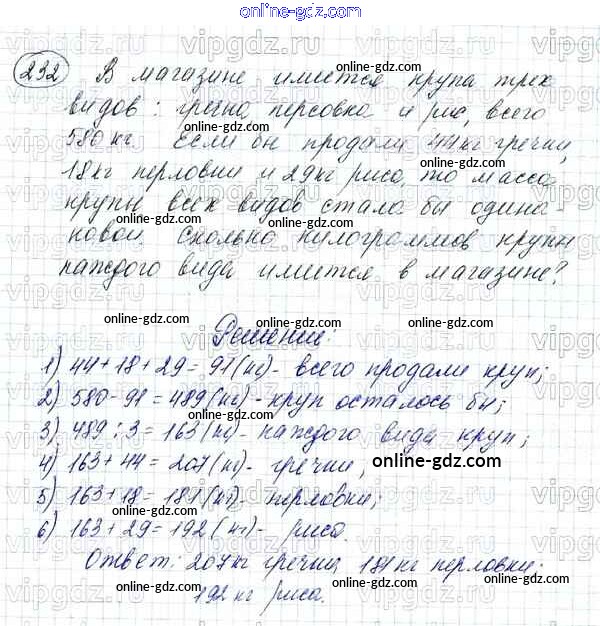 online-gdz.com
232 В магазине имеется крупа трех
видов: гречка, перловка и рис, всего
online-gdz.com
580 кг. Если бы продали 44 кг гречки,
18 кг перловки и 29 кг риса, то масса
крупы всех видов стала бы одина-
online-gdz.com
ковой. Сколько килограммов крупы
каждого вида имеется в магазине?
online-gdz.com
Решение:
1) 44+18+29=91(кг)- всего продали круп;
online-gdz.com
2) 580-91=489(кг)-круп осталось бы;
3) 489:3=163(кг)-каждого вида круп;
4) 163+44=207(кг)- гречки;
online-gdz.com
5) 163+18=181(кг)- перловки;
online-gdz.com
6) 163+29=192(кг)- риса.
Ответ: 207кг гречки, 181кг перловки;
online-gdz.com
192 кг риса.